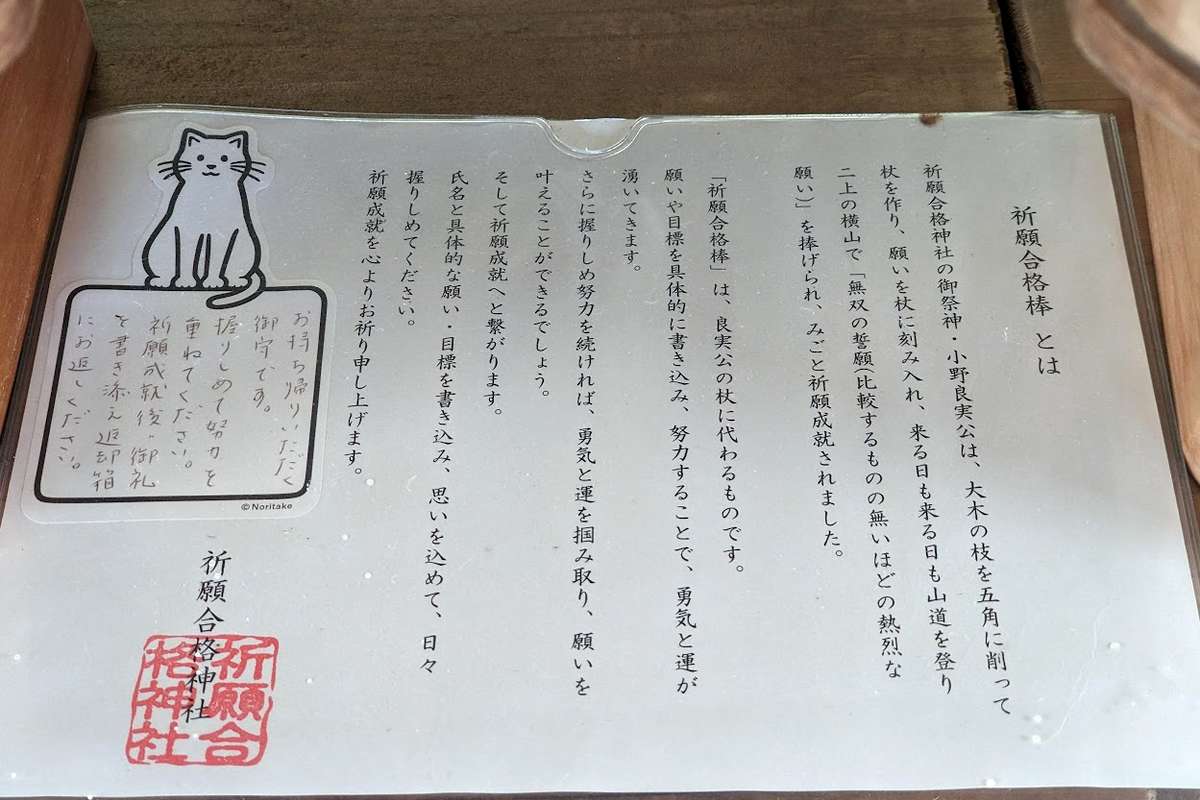 祈願合格棒 とは
祈願合格神社の御祭神・小野良実公は、大木の枝を五角に削って
杖を作り、願いを杖に刻み入れ、来る日も来る日も山道を登り
二上の横山で「無双の誓願(比較するものの無いほどの熱烈な
願い)」を捧げられ、みごと祈願成就されました。
「祈願合格棒」は、良実公の杖に代わるものです。
願いや目標を具体的に書き込み、努力することで、勇気と運が
湧いてきます。
さらに握りしめ努力を続ければ、勇気と運を掴み取り、願いを
叶えることができるでしょう。
そして祈願成就へと繋がります。
氏名と具体的な願い・目標を書き込み、思いを込めて、日々
握りしめてください。
祈願成就を心よりお祈り申し上げます。
お持ち帰りいただく
御守です。
握りしめて努力を
重ねてください。
祈願成就後、御礼
を書き添え返却箱
にお返しください。
©Noritake
祈願合格神社
祈願合
格神社